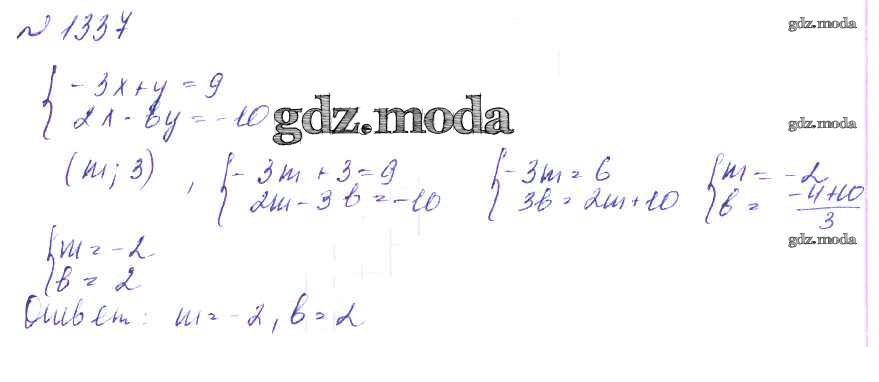 № 1337
gdz.moda
{ -3x+y=9
2x-вy=-10
gdz.moda
gdz.moda
(m; 3) , { -3m+3=9 { -3m=6 { m=-2
2m-3в=-10 3в=2m+10 в= (-4+10)/3
gdz.moda
{ m=-2
в=2
Ответ: m=-2, в=2